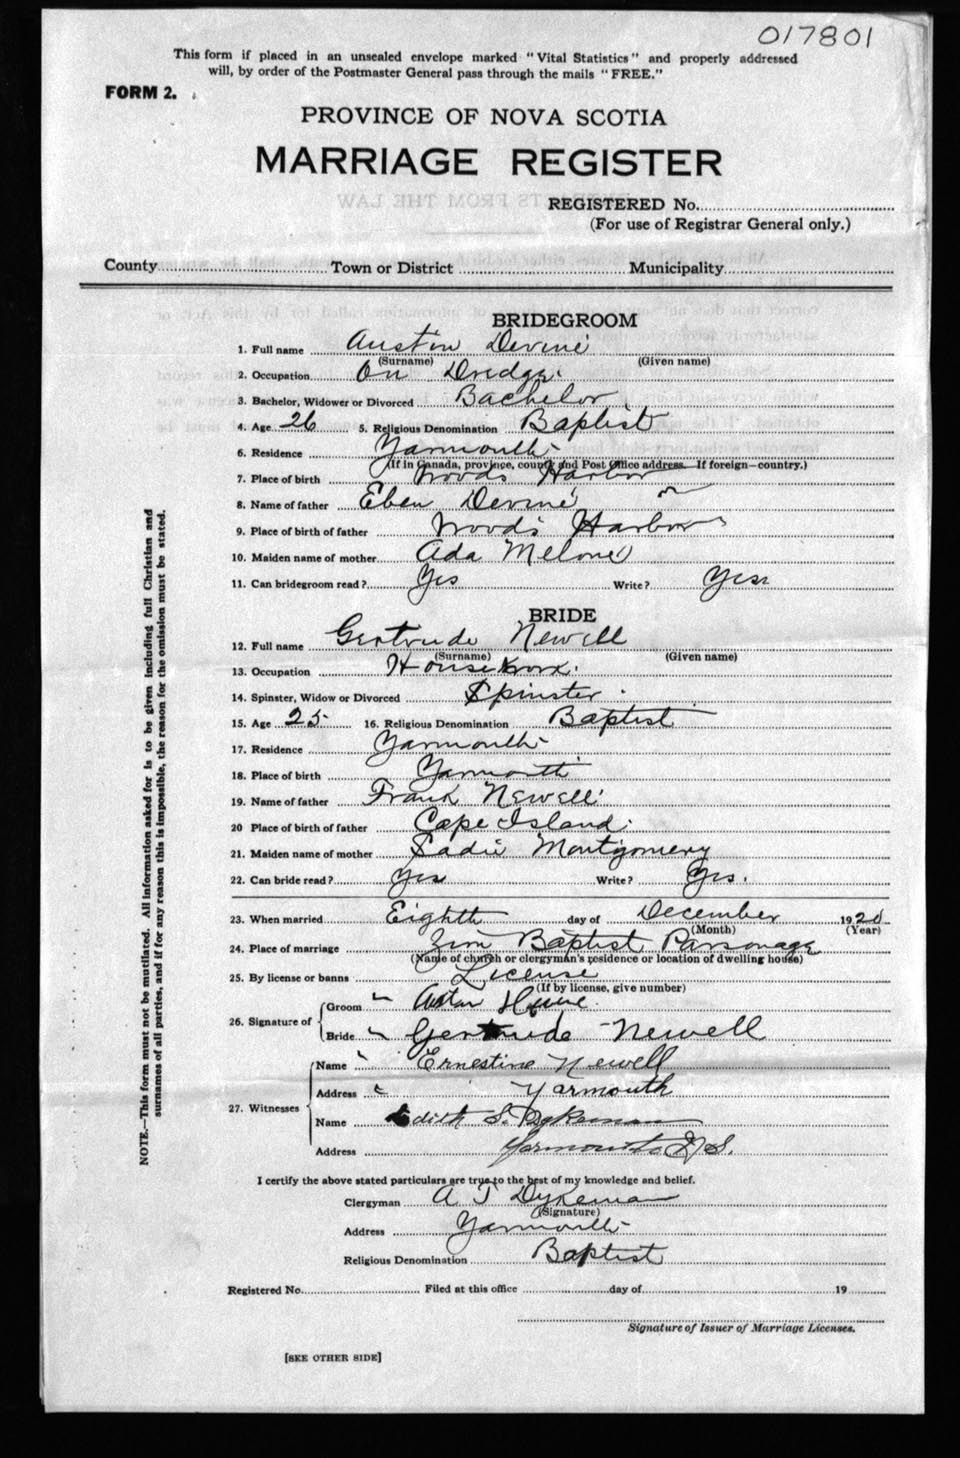 017801
This form if placed in an unsealed envelope marked "Vital Statistics" and properly addressed
will, by order of the Postmaster General pass through the mails "FREE."
FORM 2.
PROVINCE OF NOVA SCOTIA
MARRIAGE REGISTER
REGISTERED No.
(For use of Registrar General only.)
County Town or District Municipality
BRIDEGROOM
1. Full name Austin Devine
(Surname) (Given name)
2. Occupation On Dredge.
3. Bachelor, Widower or Divorced Bachelor
4. Age 26 5. Religious Denomination Baptist
6. Residence Yarmouth
(If in Canada, province, county and Post Office address. If foreign—country.)
7. Place of birth Woods Harbor
8. Name of father Eben Devine
9. Place of birth of father Woods Harbor
10. Maiden name of mother Ada Melone
11. Can bridegroom read? Yes Write? Yes
BRIDE
12. Full name Gertrude Newell
(Surname) (Given name)
13. Occupation Housework.
14. Spinster, Widow or Divorced Spinster.
15. Age 25 16. Religious Denomination Baptist
17. Residence Yarmouth
18. Place of birth Yarmouth
19. Name of father Frank Newell
20 Place of birth of father Cape Island.
21. Maiden name of mother Sadie Montgomery
22. Can bride read? Yes Write? Yes.
23. When married Eighth day of December 1920
(Month) (Year)
24. Place of marriage Zion Baptist Parsonage
(Name of church or clergyman's residence or location of dwelling house)
25. By license or banns License
(If by license, give number)
26. Signature of Groom
Bride Gertrude Newell
27. Witnesses Name Ernestine Newell
Address Yarmouth
Name Edith S. Dykeman
Address Yarmouth N.S.
I certify the above stated particulars are true to the best of my knowledge and belief.
Clergyman A J Dykeman
(Signature)
Address Yarmouth
Religious Denomination Baptist
Registered No. Filed at this office day of 19
Signature of Issuer of Marriage Licenses.
[SEE OTHER SIDE]
NOTE.—This form must not be mutilated. All information asked for is to be given including full Christian and
surnames of all parties, and if for any reason this is impossible, the reason for the omission must be stated.